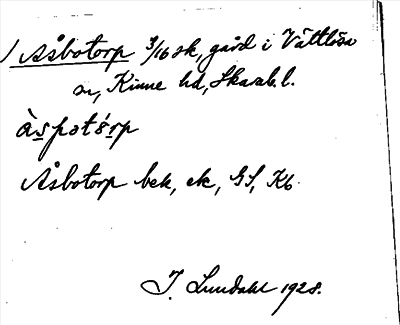 1 Åsbotorp 3/16 sk, gård i Vättlösa
sn, Kinne hd, Skarab. l.
àspot$rp
Åsbotorp bek, ek, GS, Kb.
I. Lundahl 1928.